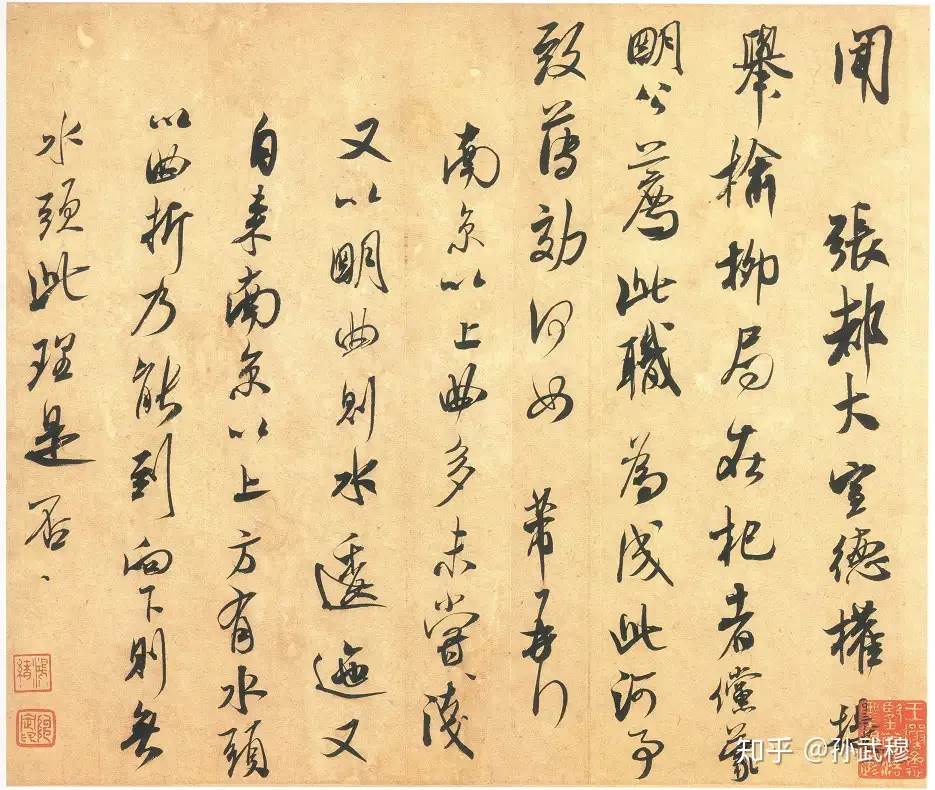 聞 張都大宣德權提
舉榆柳局在杞者儻蒙
明公薦此職為成此河事
致薄効何如 芾再行
南京以上曲多未嘗淺
又以明曲則水逶迤又
自来南京以上方有水頭
以曲折乃能到向下則無
水頭此理是否、
知乎 @孙武穆